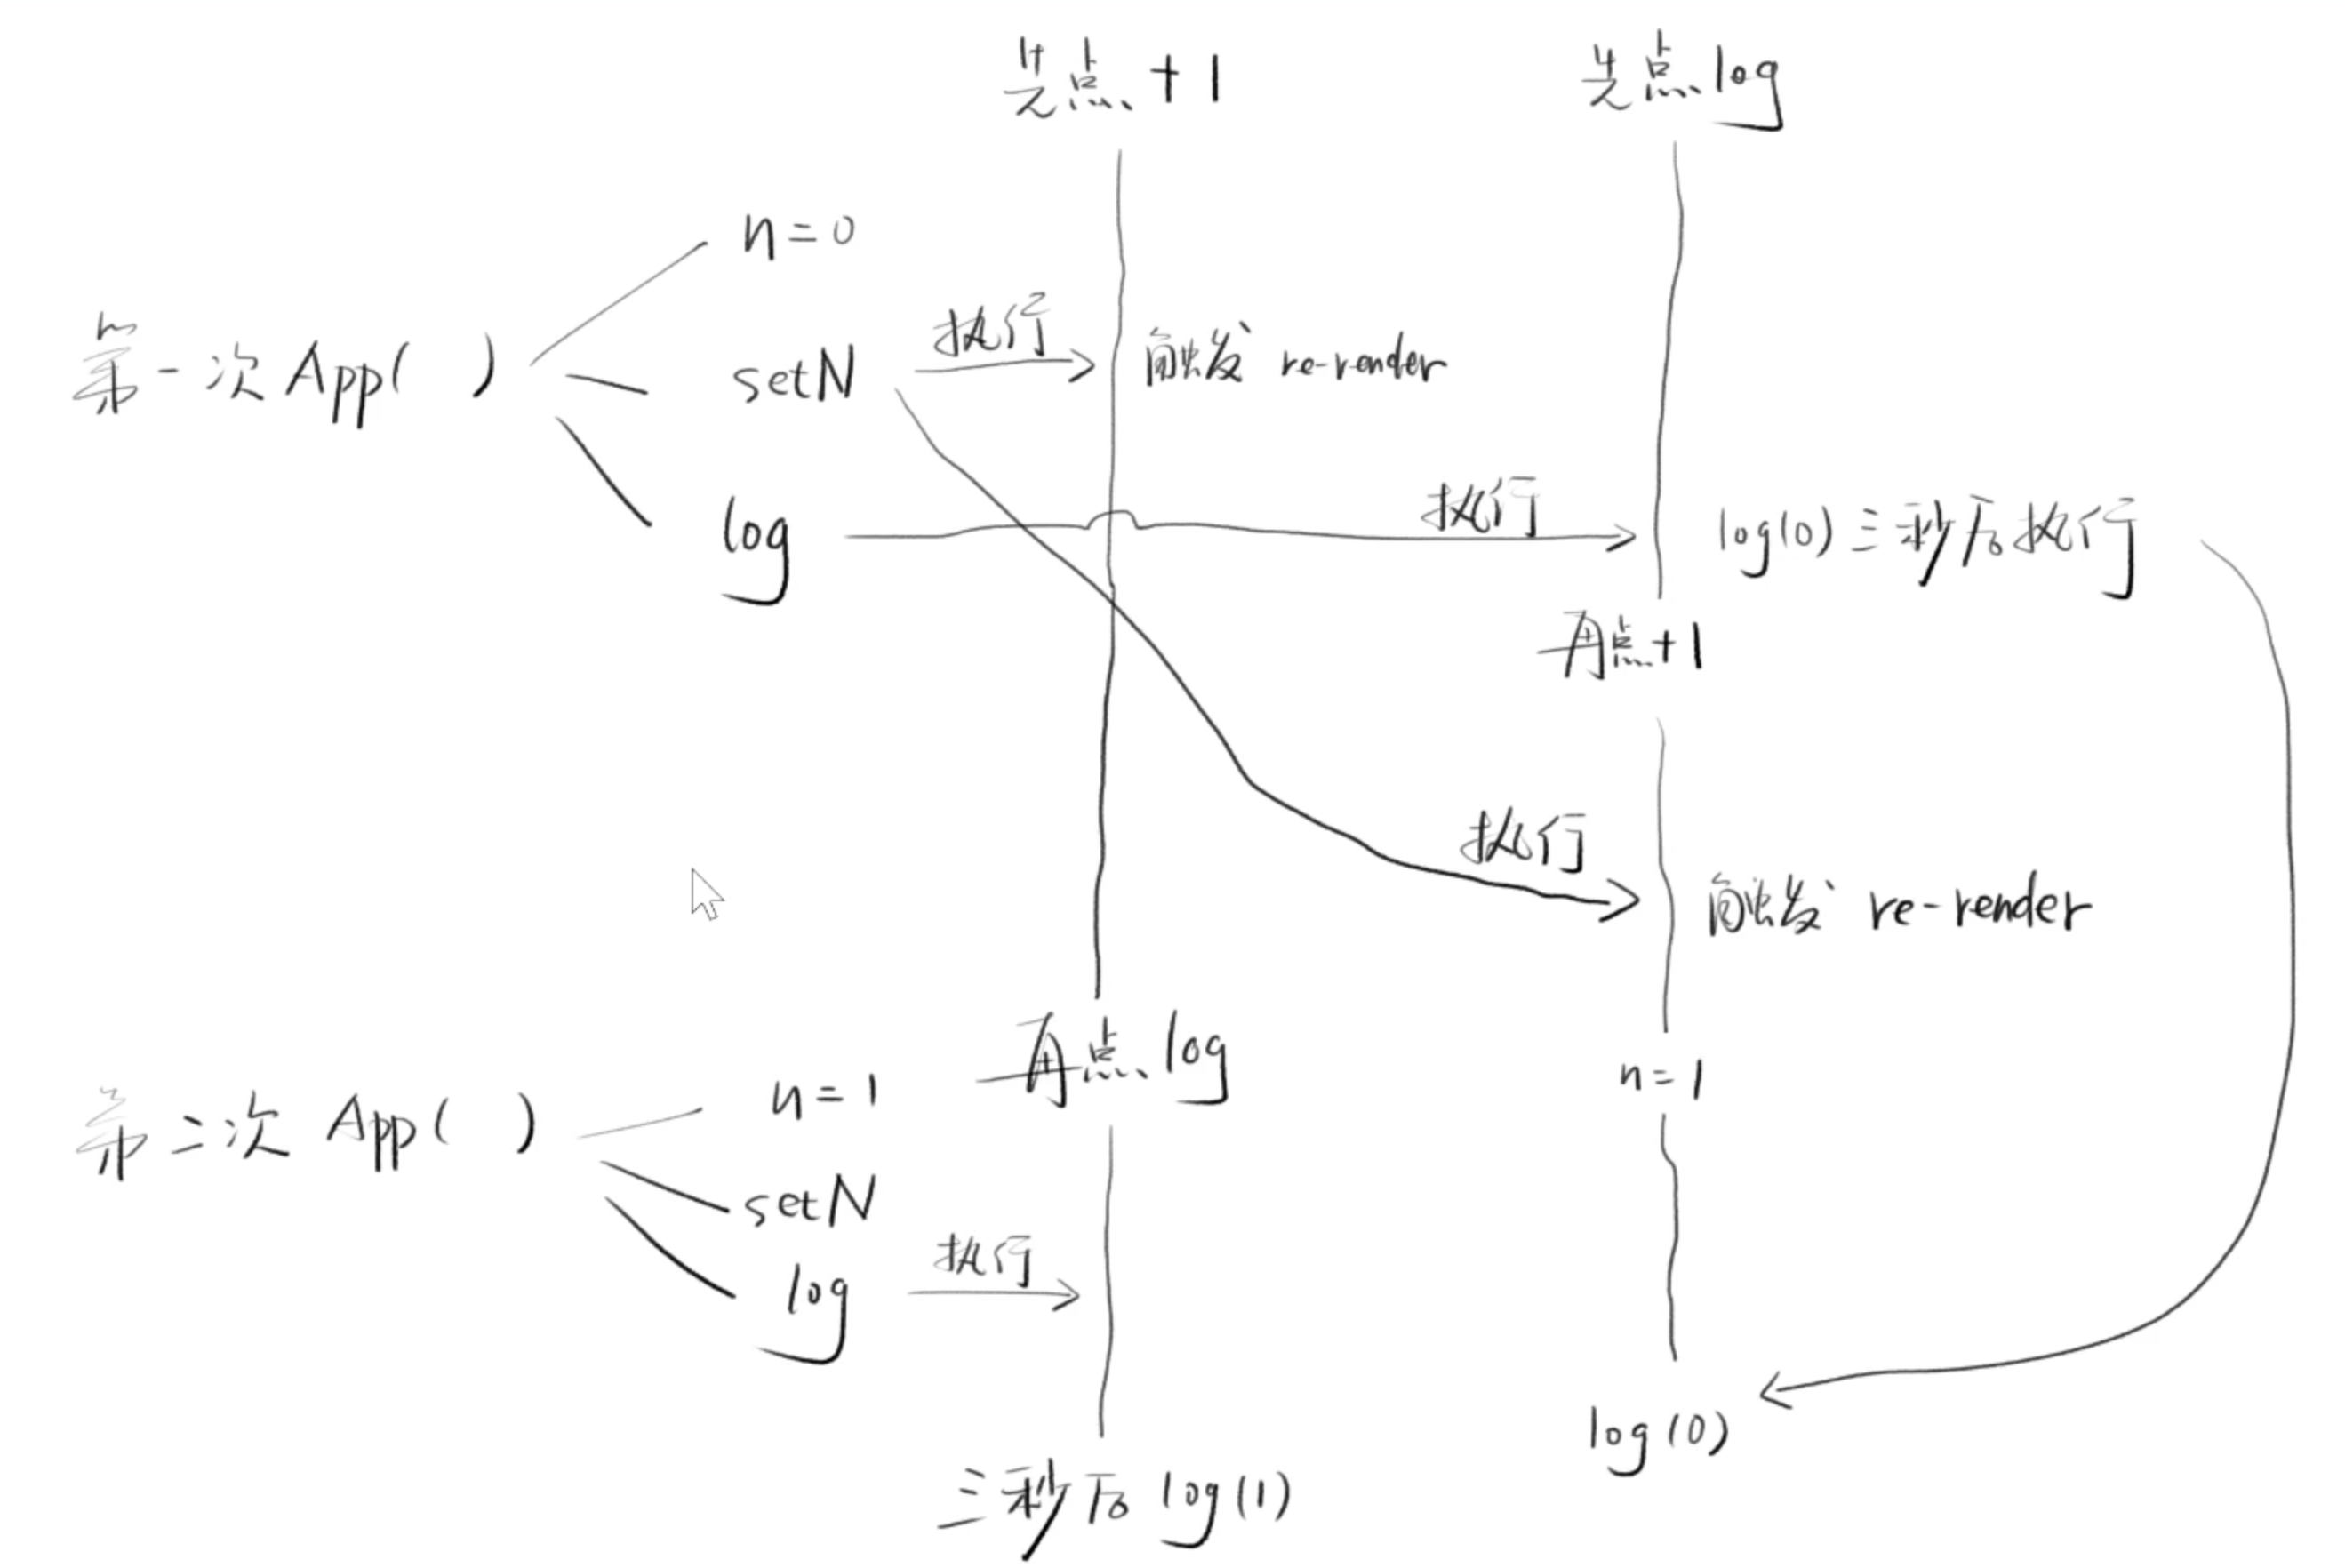 先点+1
先点log
n=0
第一次App( )
setN
执行
触发 re-render
log
执行
log(0)三秒后执行
再点+1
执行
触发 re-render
再点log
n=1
第二次 App( )
n=1
setN
log
执行
log(0)
三秒后 log(1)